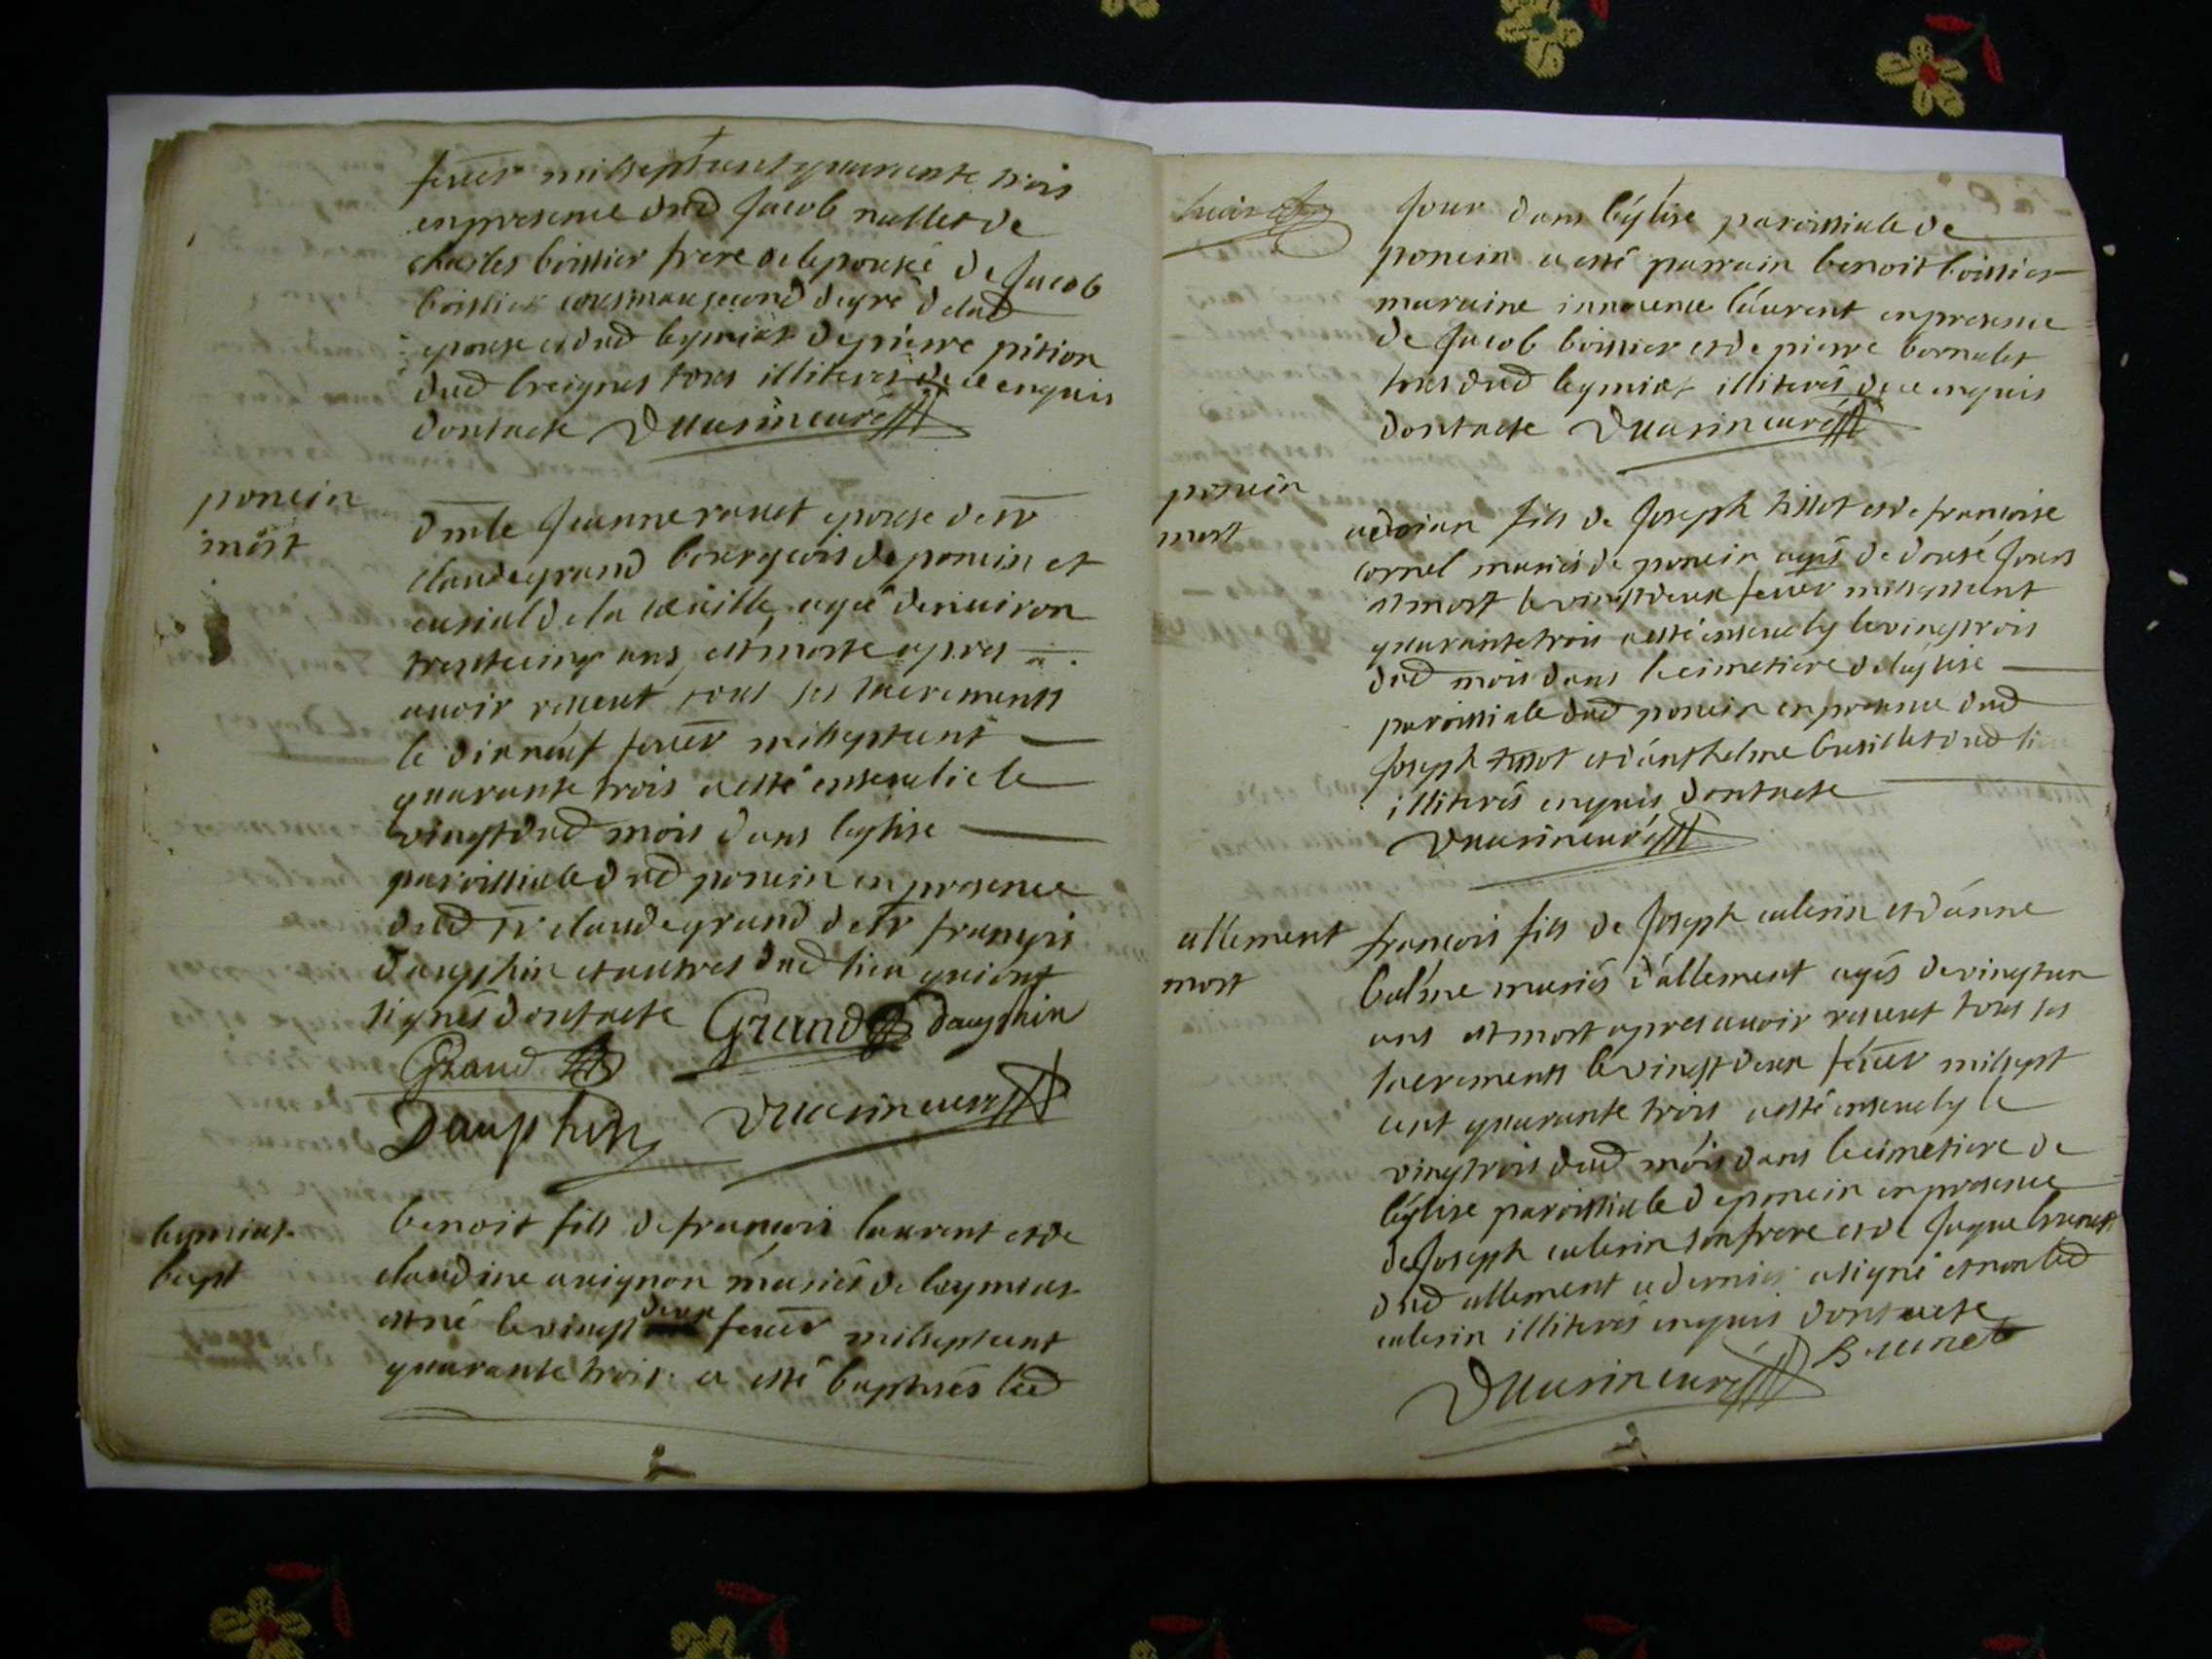 fevер milseptcent quarante trois
en presence dud Jacob nallet de
charles boissier frere de lepouse de Jacob
boissier cousin au second degré de lad
epouse et dud leymiat de pierre pition
dud breignes tous illiterés de ce enquis
dont acte Duasin curé
poncin
mort
dmle Jeanne ravet epouse de sr
claude grand bourgeois de poncin et
chatelain de la ville, agée denviron
trente cinq ans, est morte apres
avoir receut tous ses sacrements
le dixneuf fever milseptcent
quarante trois a esté ensevelie le
vingt dud mois dans leglise
paroissiale dud poncin en presence
dud sr claude grand de sr françois
dauphin et autres dud lieu qui ont
signés dont acte Grand Dauphin
Grand
Dauphin Duasin curé
leymiat
bapt
benoit fils de francois laurent et de
claudine avignon mariés de leymiat
est né le vingt deux fever milseptcent
quarante trois a esté baptisés led
Jour dans léglise paroissiale de
poncin a esté parrain benoit boissier
maraine innocence laurent en presence
de Jacob boissier et de pierre bornalet
tous dud leymiat illiterés de ce enquis
dont acte Duasin curé
poncin
mort
adrian fils de Joseph tissot et de francoise
cornel mariés de poncin agés de douse Jours
est mort le vingt deux fever milseptcent
quarante trois a esté ensevely le vingtrois
dud mois dans le cimetiere de léglise
paroissiale dud poncin en presence dud
Joseph tissot et dánthelme busillet dud lieu
illiterés enquis dont acte
Duasin curé
allement
mort
francois fils de Joseph caberin et dánne
balme mariés dállement agés de vingtun
ans est mort apres avoir receut tous ses
sacrements le vingt deux fever milsept
cent quarante trois a esté ensevely le
vingtrois dud mois dans le cimetiere de
léglise paroissiale de poncin en presence
de Joseph caberin son frere et de Jaque brunet
dud allement ce dernier a signé et non led
caberin illiterés enquis dont acte
Duasin curé Brunet